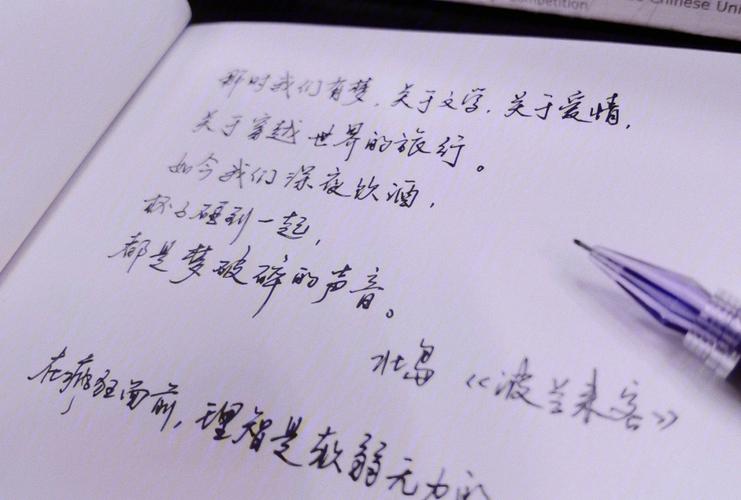 Competition
Chinese Uni
那时我们有梦,关于文学,关于爱情,
关于穿越世界的旅行。
如今我们深夜饮酒,
杯子碰到一起,
都是梦破碎的声音。
北岛《波兰来客》
在疯狂面前,理智是软弱无力的